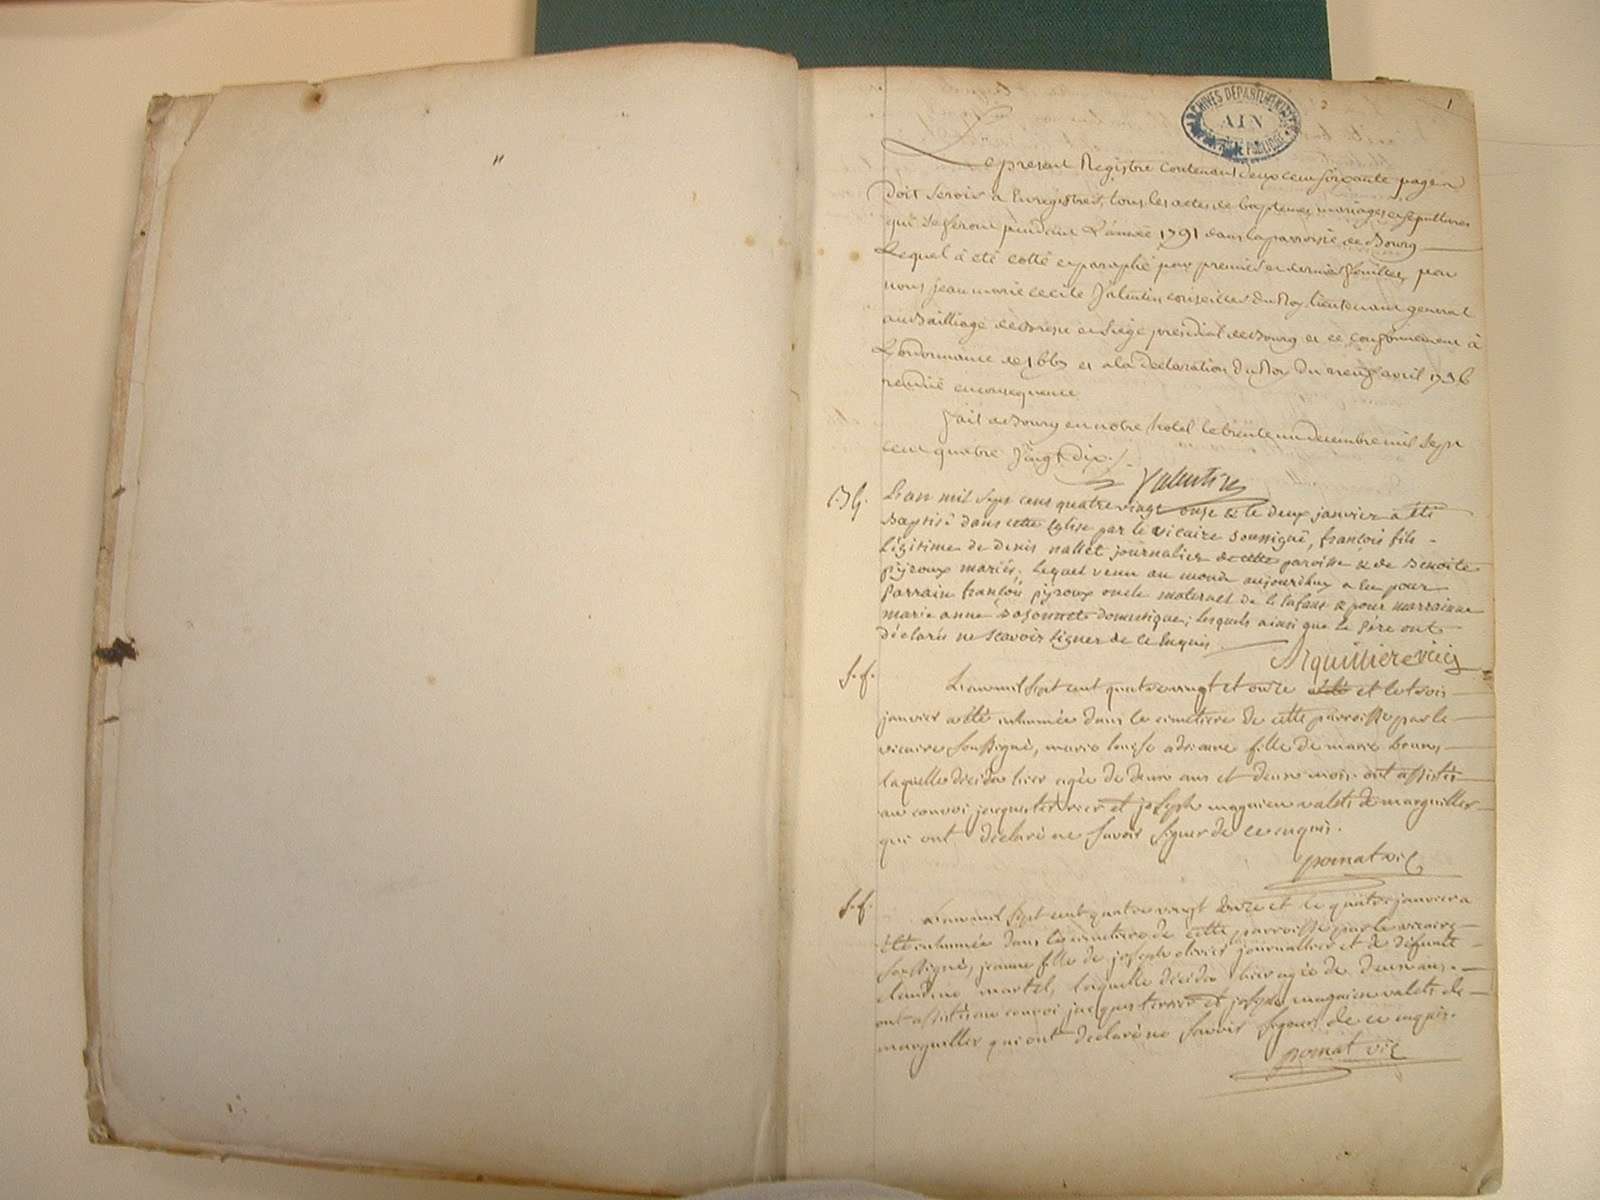 1
ARCHIVES DÉPARTEMENTALES
AIN
PUBLIQUE
Le present Registre contenant deux cent soixante pages
doit servir a Enregistrer tous les actes de baptemes, mariages et sepultures
qui se feront pendant L'année 1791 dans la parroisse de Bourg
Lequel à eté cotté et paraphé par premier et dernier feuillet, par
nous jean marie cecile Valentin conseiller du Roy, lieutenant general
au Bailliage de Bresse et siege presidial de Bourg et ce conformement à
L'ordonnance de 1667 et a la declaration du Roy du neuf avril 1736
rendüe en consequence
fait a Bourg en notre hotel le trente un decembre mil sept
cent quatre vingt dix /.
Valentin
L'an mil sept cens quatre vingt onze & le deux janvier a été
Baptisé dans cette Eglise par le vicaire soussigné, françois fils
légitime de denis nallet journalier de cette paroisse & de Benoite
pijroux mariés, lequel venu au monde aujourdhuy a eu pour
Parrain françois pijroux oncle maternel de l'Enfant & pour marrainne
marie anne domestique; lesquels ainsi que le Père ont
déclarés ne scavoir signer de ce Enquis.
vic
s. f.
L'an mil sept cent quatre vingt et onze et le trois
janvier a été inhumée dans le cimetiere de cette parroisse par le
vicaire soussigné, marie louise adrianne fille de marie brun,
laquelle décéda hier agée de deux ans et deux mois. ont assistés
au convoi jacques terrier et joseph magnien valets de marguillier
qui ont déclaré ne savoir signer de ce enquis.
pomat vic
s. f.
L'an mil sept cent quatre vingt onze et le quatre janvier a
été inhumée dans le cimetiere de cette parroisse par le vicaire
soussigné, jeanne fille de joseph olivier journallier et de défunte
claudine martel, laquelle décéda hier agée de deux ans.
ont assistés au convoi jacques terrier et joseph magnien valets de
marguillier qui ont déclaré ne savoir signer de ce enquis.
pomat vic